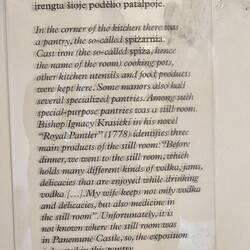 įrengta šioje podėlio patalpoje.
In the corner of the kitchen there was
a pantry, the so-called spižarnia.
Cast iron (the so-called spiža, hence
the name of the room) cooking pots,
other kitchen utensils and food products
were kept here. Some manors also had
several specialized pantries. Among such
special-purpose pantries was a still room.
Bishop Ignacy Krasicki in his novel
"Royal Pantler" (1778) identifies three
main products of the still room: "Before
dinner, we went to the still room, which
holds many different kinds of vodka, jams,
delicacies that are enjoyed while drinking
vodka [...] My wife keeps not only vodka
and delicacies, but also medicine in
the still room". Unfortunately, it is
not known where the still room was
in Panemunė Castle, so, the exposition